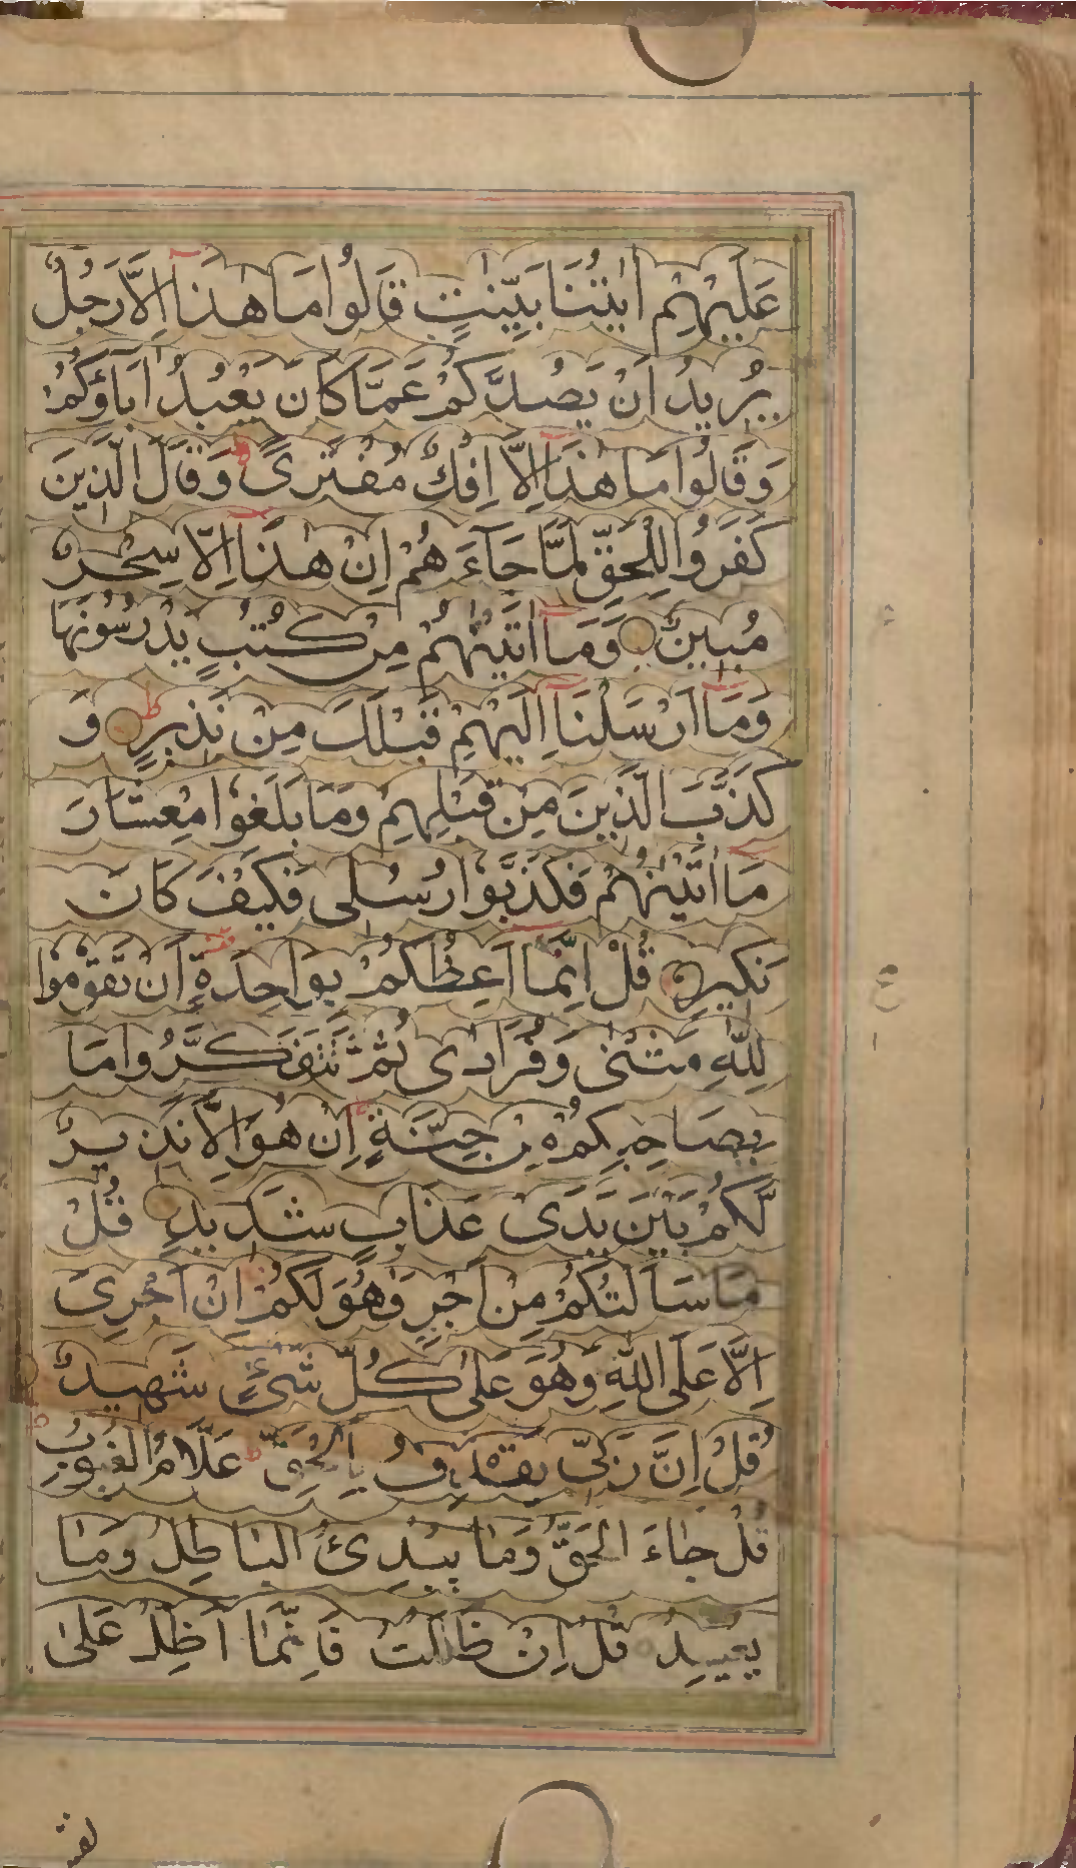 عَلَيْهِمْ اٰيٰتُنَا بَيِّنٰتٍ قَالُوا مَا هٰذَآ اِلَّا رَجُلٌ
يُرِيدُ اَنْ يَصُدَّكُمْ عَمَّا كَانَ يَعْبُدُ اٰبَاؤُكُمْ
وَقَالُوا مَا هٰذَآ اِلَّا اِفْكٌ مُفْتَرًى ط وَقَالَ الَّذِينَ
كَفَرُوا لِلْحَقِّ لَمَّا جَآءَ هُمْ اِنْ هٰذَآ اِلَّا سِحْرٌ
مُبِينٌ وَمَآ اٰتَيْنٰهُمْ مِنْ كُتُبٍ يَدْرُسُونَهَا
وَمَآ اَرْسَلْنَآ اِلَيْهِمْ قَبْلَكَ مِنْ نَذِيرٍ ط وَ
كَذَّبَ الَّذِينَ مِنْ قَبْلِهِمْ وَمَا بَلَغُوا مِعْشَارَ
مَآ اٰتَيْنٰهُمْ فَكَذَّبُوا رُسُلِى فَكَيْفَ كَانَ
نَكِيرِ قُلْ اِنَّمَآ اَعِظُكُمْ بِوَاحِدَةٍ اَنْ تَقُومُوا
لِلّٰهِ مَثْنٰى وَفُرَادٰى ثُمَّ تَتَفَكَّرُوا مَا
بِصَاحِبِكُمْ مِنْ جِنَّةٍ اِنْ هُوَ اِلَّا نَذِيرٌ
لَّكُمْ بَيْنَ يَدَىْ عَذَابٍ شَدِيدٍ قُلْ
مَا سَاَلْتُكُمْ مِنْ اَجْرٍ فَهُوَ لَكُمْ اِنْ اَجْرِىَ
اِلَّا عَلَى اللّٰهِ وَهُوَ عَلٰى كُلِّ شَىْءٍ شَهِيدٌ
قُلْ اِنَّ رَبِّى يَقْذِفُ بِالْحَقِّ ط عَلَّامُ الْغُيُوبِ
قُلْ جَاءَ الْحَقُّ وَمَا يُبْدِئُ الْبَاطِلُ وَمَا
يُعِيدُ قُلْ اِنْ ضَلَلْتُ فَاِنَّمَا اَضِلُّ عَلٰى